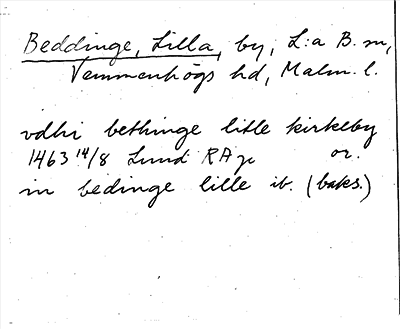 Beddinge, Lilla, by, L:a B. sn,
Vemmenhögs hd, Malm. l.
vdhi bethinge litle kirkeby
1463 14/8 Lund RAp or.
in bedinge lille ib. (baks.)